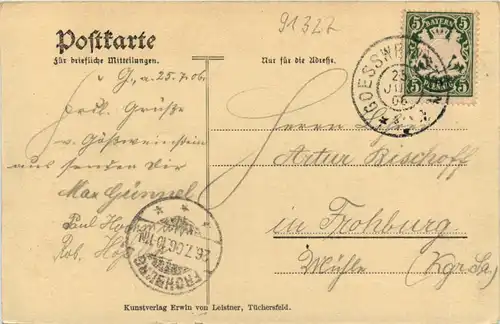 91322
Postkarte
Für briefliche Mitteilungen.
Nur für die Adresse.
BAYERN
5 5
5 5
GOESSW
25
JUL
06
G., a. 25.7.06.
Frdl. Grüße
v. Gößweinstein
aus senden Dir
Max Günnel
Paul
Rob.
Herrn
Artur Bischoff
in Frohburg
Mühle (Kgr. Sa.)
FROHBURG
26.7.06.
Kunstverlag Erwin von Leistner, Tüchersfeld.